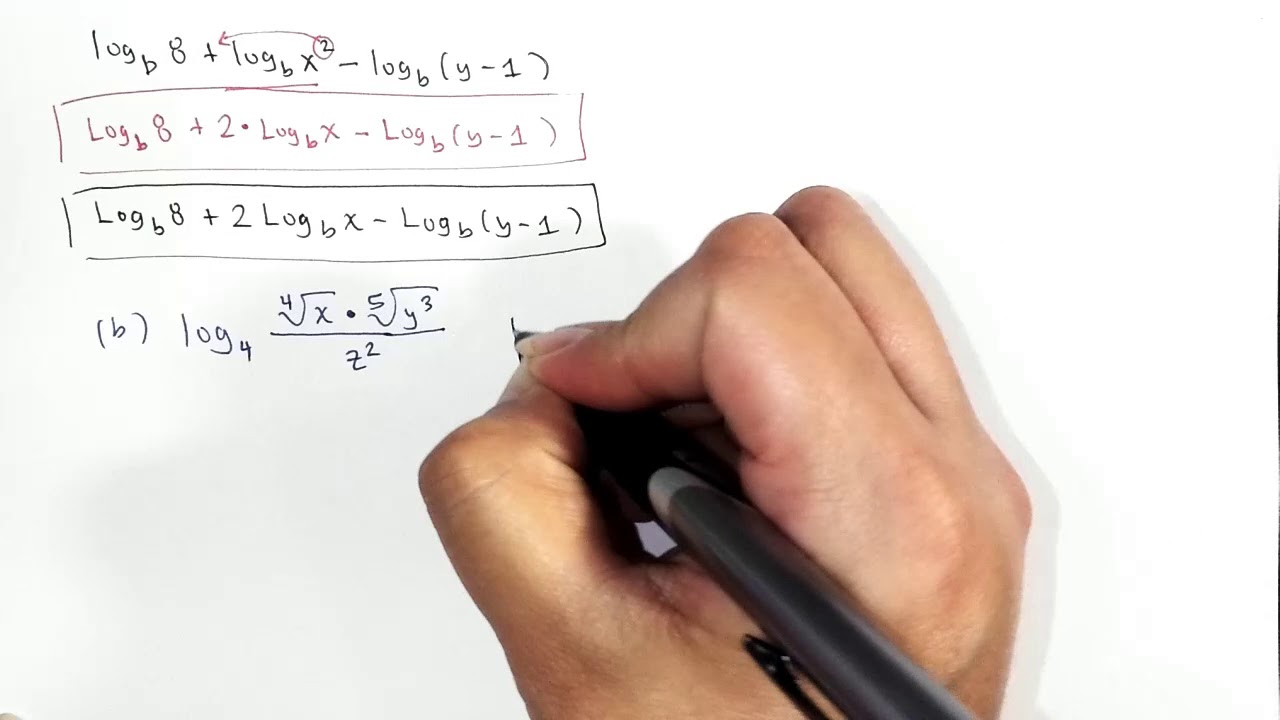 log_b 8 + log_b x^2 − log_b (y − 1)
Log_b 8 + 2 · Log_b x − Log_b (y − 1)
Log_b 8 + 2 Log_b x − Log_b (y − 1)
(b) log_4 (∜x · ⁵√y^3) / z^2